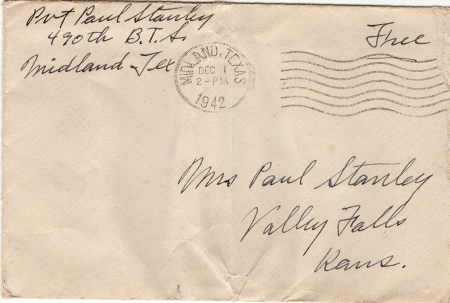 Pvt Paul Stanley
490th B.T.S.
Midland Tex
Free
MIDLAND, TEXAS
DEC 1
2-PM
1942
Mrs Paul Stanley
Valley Falls
Kans.